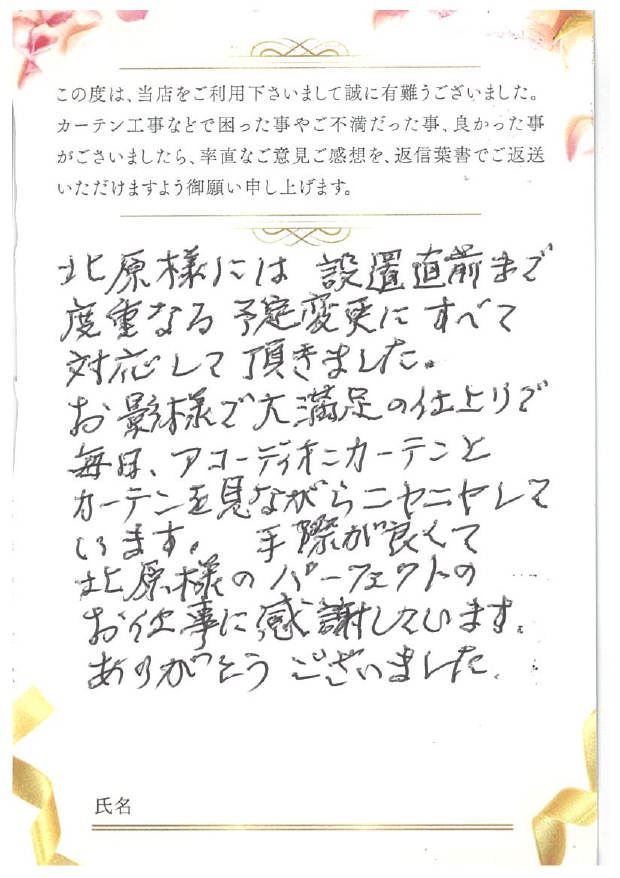 この度は、当店をご利用下さいまして誠に有難うございました。
カーテン工事などで困った事やご不満だった事、良かった事
がございましたら、率直なご意見ご感想を、返信葉書でご返送
いただけますよう御願い申し上げます。
北原様には 設置直前まで
度重なる予定変更にすべて
対応して頂きました。
お影様で大満足の仕上りで
毎日、アコーディオンカーテンと
カーテンを見ながらニヤニヤして
います。 手際が良くて
北原様のパーフェクトの
お仕事に感謝しています。
ありがとうございました。
氏名